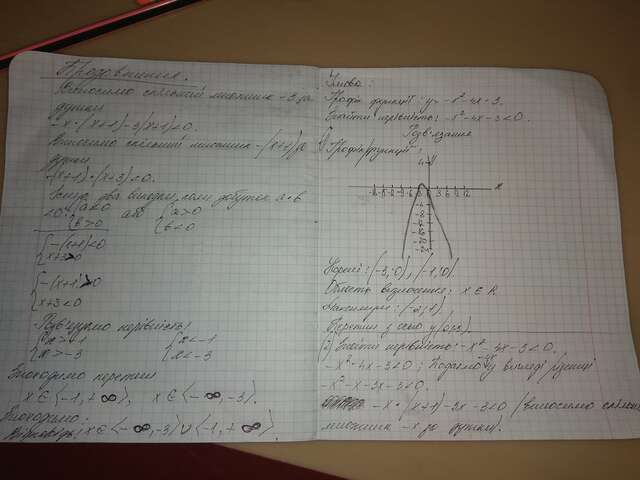 Продовження.
Виносимо спільний множник -3 за
дужки
-x·(x+1)-3(x+1)<0.
Виносимо спільний множник -(x+1) за
дужки
-(x+1)·(x+3)<0.
Існує два випадки, коли добуток a·b
<0: {a<0 або {a>0
{b>0 {b<0
{-(x+1)<0
{x+3>0
{-(x+1)>0
x+3<0
Розв'язуємо нерівність:
{x>-1 {x<-1
{x>-3 {x<-3
Знаходимо перетин
x∈⟨-1,+∞⟩, x∈⟨-∞,-3⟩.
Знаходимо:
Відповідь: x∈⟨-∞,-3⟩∪⟨-1,+∞⟩
Умова:
Графік функції: y=-x²-4x-3.
Знайти нерівність: -x²-4x-3<0.
Розв'язання
1) Графік функції:
y
x
Корені: (-3;0), (-1;0).
Область визначення: x∈R.
Максимум: (-2;1)
Перетин з осью y (0;-3).
2) Знайти нерівність: -x²-4x-3<0.
-x²-4x-3<0; Подаємо -4x у вигляді різниці
-x²-x-3x-3<0.
-x·(x+1)-3x-3<0 (Виносимо спільний
множник -x за дужки).